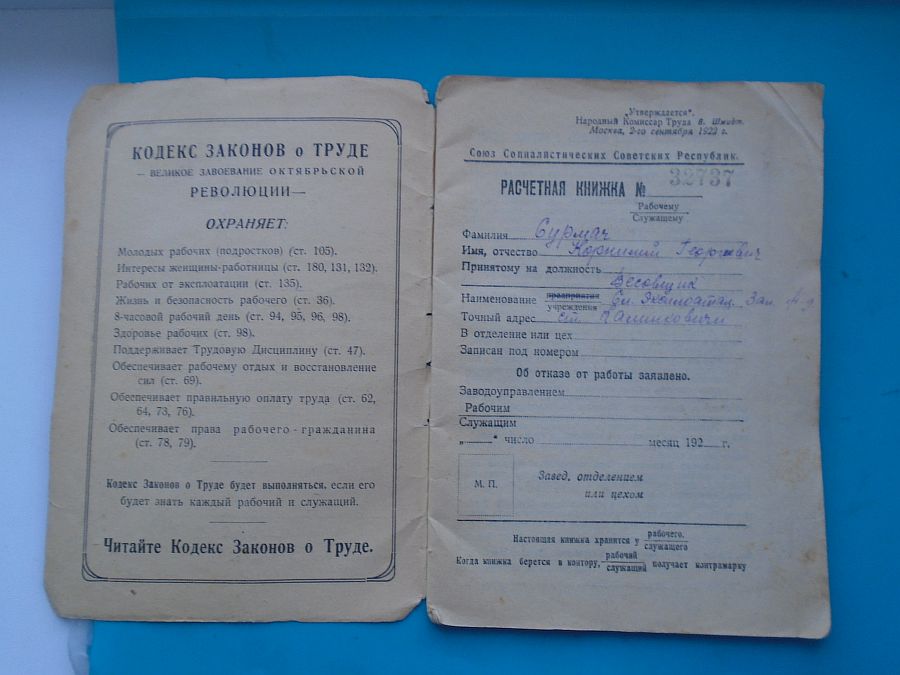 КОДЕКС ЗАКОНОВ о ТРУДЕ
— ВЕЛИКОЕ ЗАВОЕВАНИЕ ОКТЯБРЬСКОЙ
РЕВОЛЮЦИИ—
ОХРАНЯЕТ:
Молодых рабочих (подростков) (ст. 105).
Интересы женщины-работницы (ст. 180, 131, 132).
Рабочих от эксплоатации (ст. 135).
Жизнь и безопасность рабочего (ст. 36).
8-часовой рабочий день (ст. 94, 95, 96, 98).
Здоровье рабочих (ст. 98).
Поддерживает Трудовую Дисциплину (ст. 47).
Обеспечивает рабочему отдых и восстановление
сил (ст. 69).
Обеспечивает правильную оплату труда (ст. 62,
64, 73, 76).
Обеспечивает права рабочего-гражданина
(ст. 78, 79).
Кодекс Законов о Труде будет выполняться, если его
будет знать каждый рабочий и служащий.
Читайте Кодекс Законов о Труде.
„Утверждается".
Народный Комиссар Труда В. Шмидт.
Москва, 2-го сентября 1922 г.
Союз Социалистических Советских Республик.
РАСЧЕТНАЯ КНИЖКА № 32737
Рабочему
Служащему
Фамилия Сурмач
Имя, отчество Корнилий Георгиевич
Принятому на должность
Весовщик
Наименование предприятия
учреждения
Точный адрес ст. Калинковичи
В отделение или цех
Записан под номером
Об отказе от работы заявлено.
Заводоуправлением
Рабочим
Служащим
„ " число месяц 192 г.
М. П.
Завед. отделением
или цехом
Настоящая книжка хранится у рабочего.
служащего
Когда книжка берется в контору, рабочий
служащий получает контрамарку